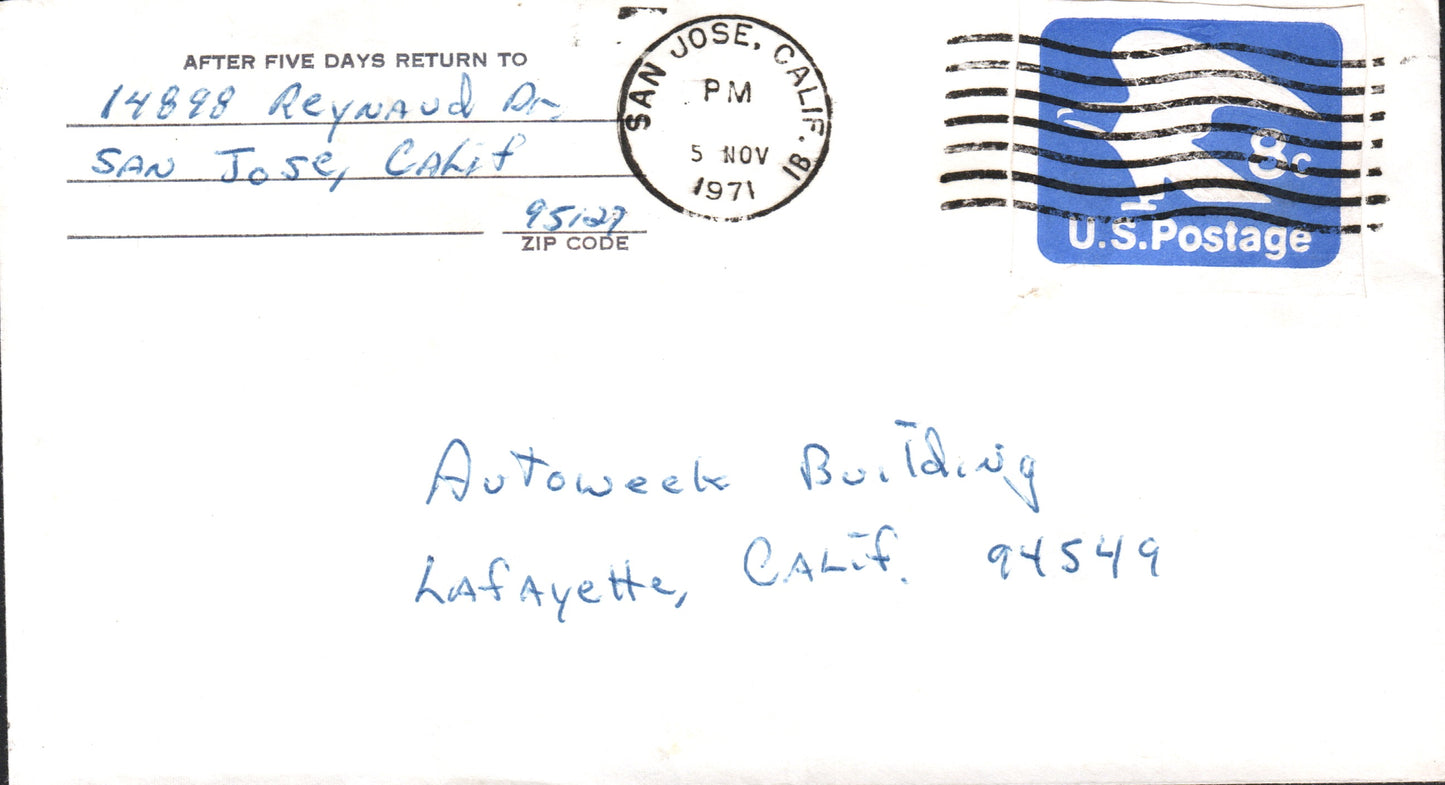 AFTER FIVE DAYS RETURN TO
14898 Reynaud Dr.
SAN JOSE, CALif
95127
ZIP CODE
SAN JOSE, CALIF. 1B
PM
5 NOV
1971
8c
U.S. Postage
Autoweek Building
LAfAyette, CALif. 94549